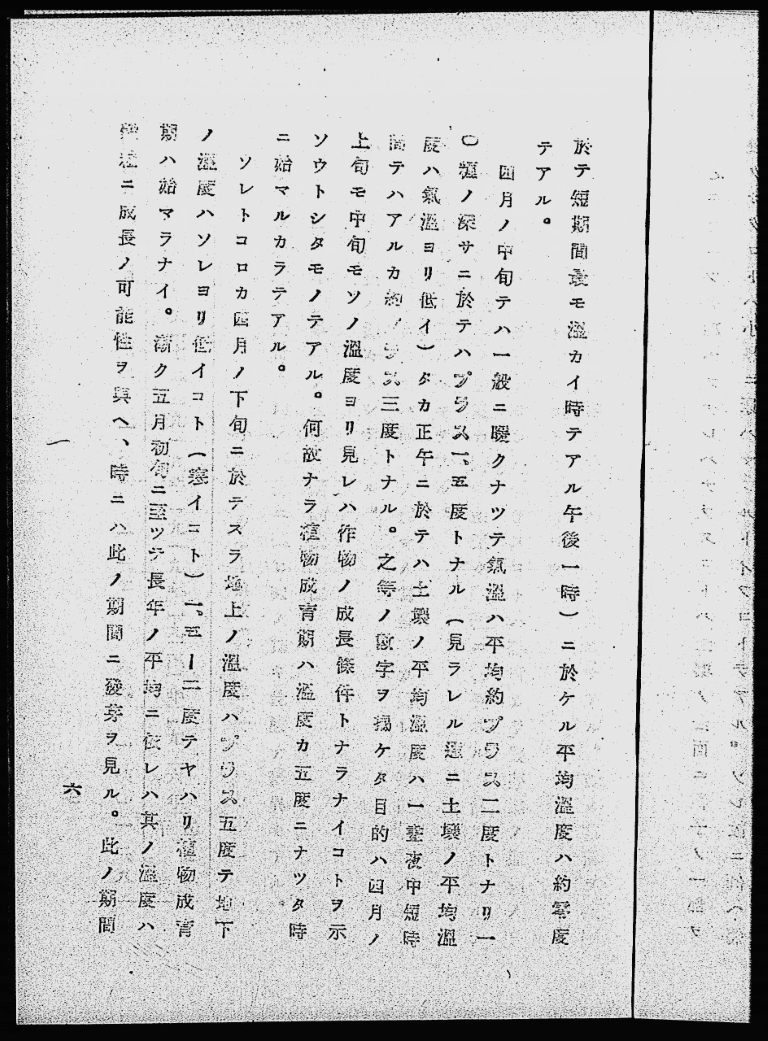 於テ短期間最モ溫カイ時テアル午後一時）ニ於ケル平均溫度ハ約零度
テアル。
四月ノ中旬テハ一般ニ暖クナツテ氣溫ハ平均約プラス二度トナリ一
〇糎ノ深サニ於テハプラス一、五度トナル（見ラレル通ニ土壤ノ平均溫
度ハ氣溫ヨリ低イ）タカ正午ニ於テハ土壤ノ平均溫度ハ一晝夜中短時
間テハアルカ約プラス三度トナル。之等ノ數字ヲ揭ケタ目的ハ四月ノ
上旬モ中旬モソノ溫度ヨリ見レハ作物ノ成長條件トナラナイコトヲ示
ソウトシタモノテアル。何故ナラ植物成育期ハ溫度カ五度ニナツタ時
ニ始マルカラテアル。
ソレトコロカ四月ノ下旬ニ於テスラ地上ノ溫度ハプラス五度テ地下
ノ溫度ハソレヨリ低イコト（寒イコト）一、五ー二度テヤハリ植物成育
期ハ始マラナイ。漸ク五月初旬ニ至ツテ長年ノ平均ニ依レハ其ノ溫度ハ
ニ成長ノ可能性ヲ與ヘ、時ニハ此ノ期間ニ發芽ヲ見ル。此ノ期間
六